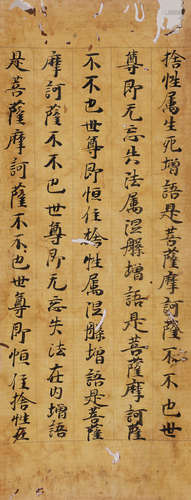 捨性属生死增語是菩薩摩訶薩不不也世
尊即无忘失法属涅槃增語是菩薩摩訶薩
不不也世尊即恒住捨性属涅槃增語是菩薩
摩訶薩不不也世尊即无忘失法在内增語
是菩薩摩訶薩不不也世尊即恒住捨性在